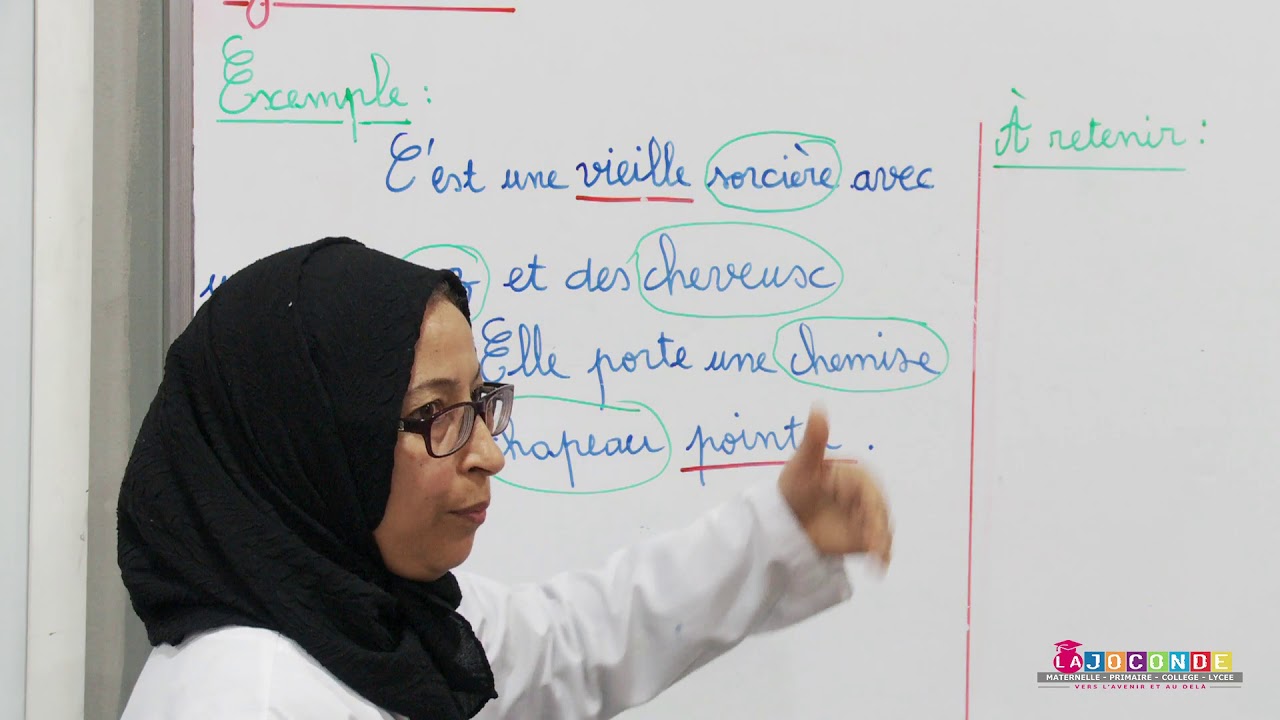 Exemple :
C'est une vieille sorcière avec
et des cheveux
Elle porte une chemise
chapeau pointu .
À retenir :
LAJOCONDE
MATERNELLE - PRIMAIRE - COLLEGE - LYCEE
VERS L'AVENIR ET AU DELÀ